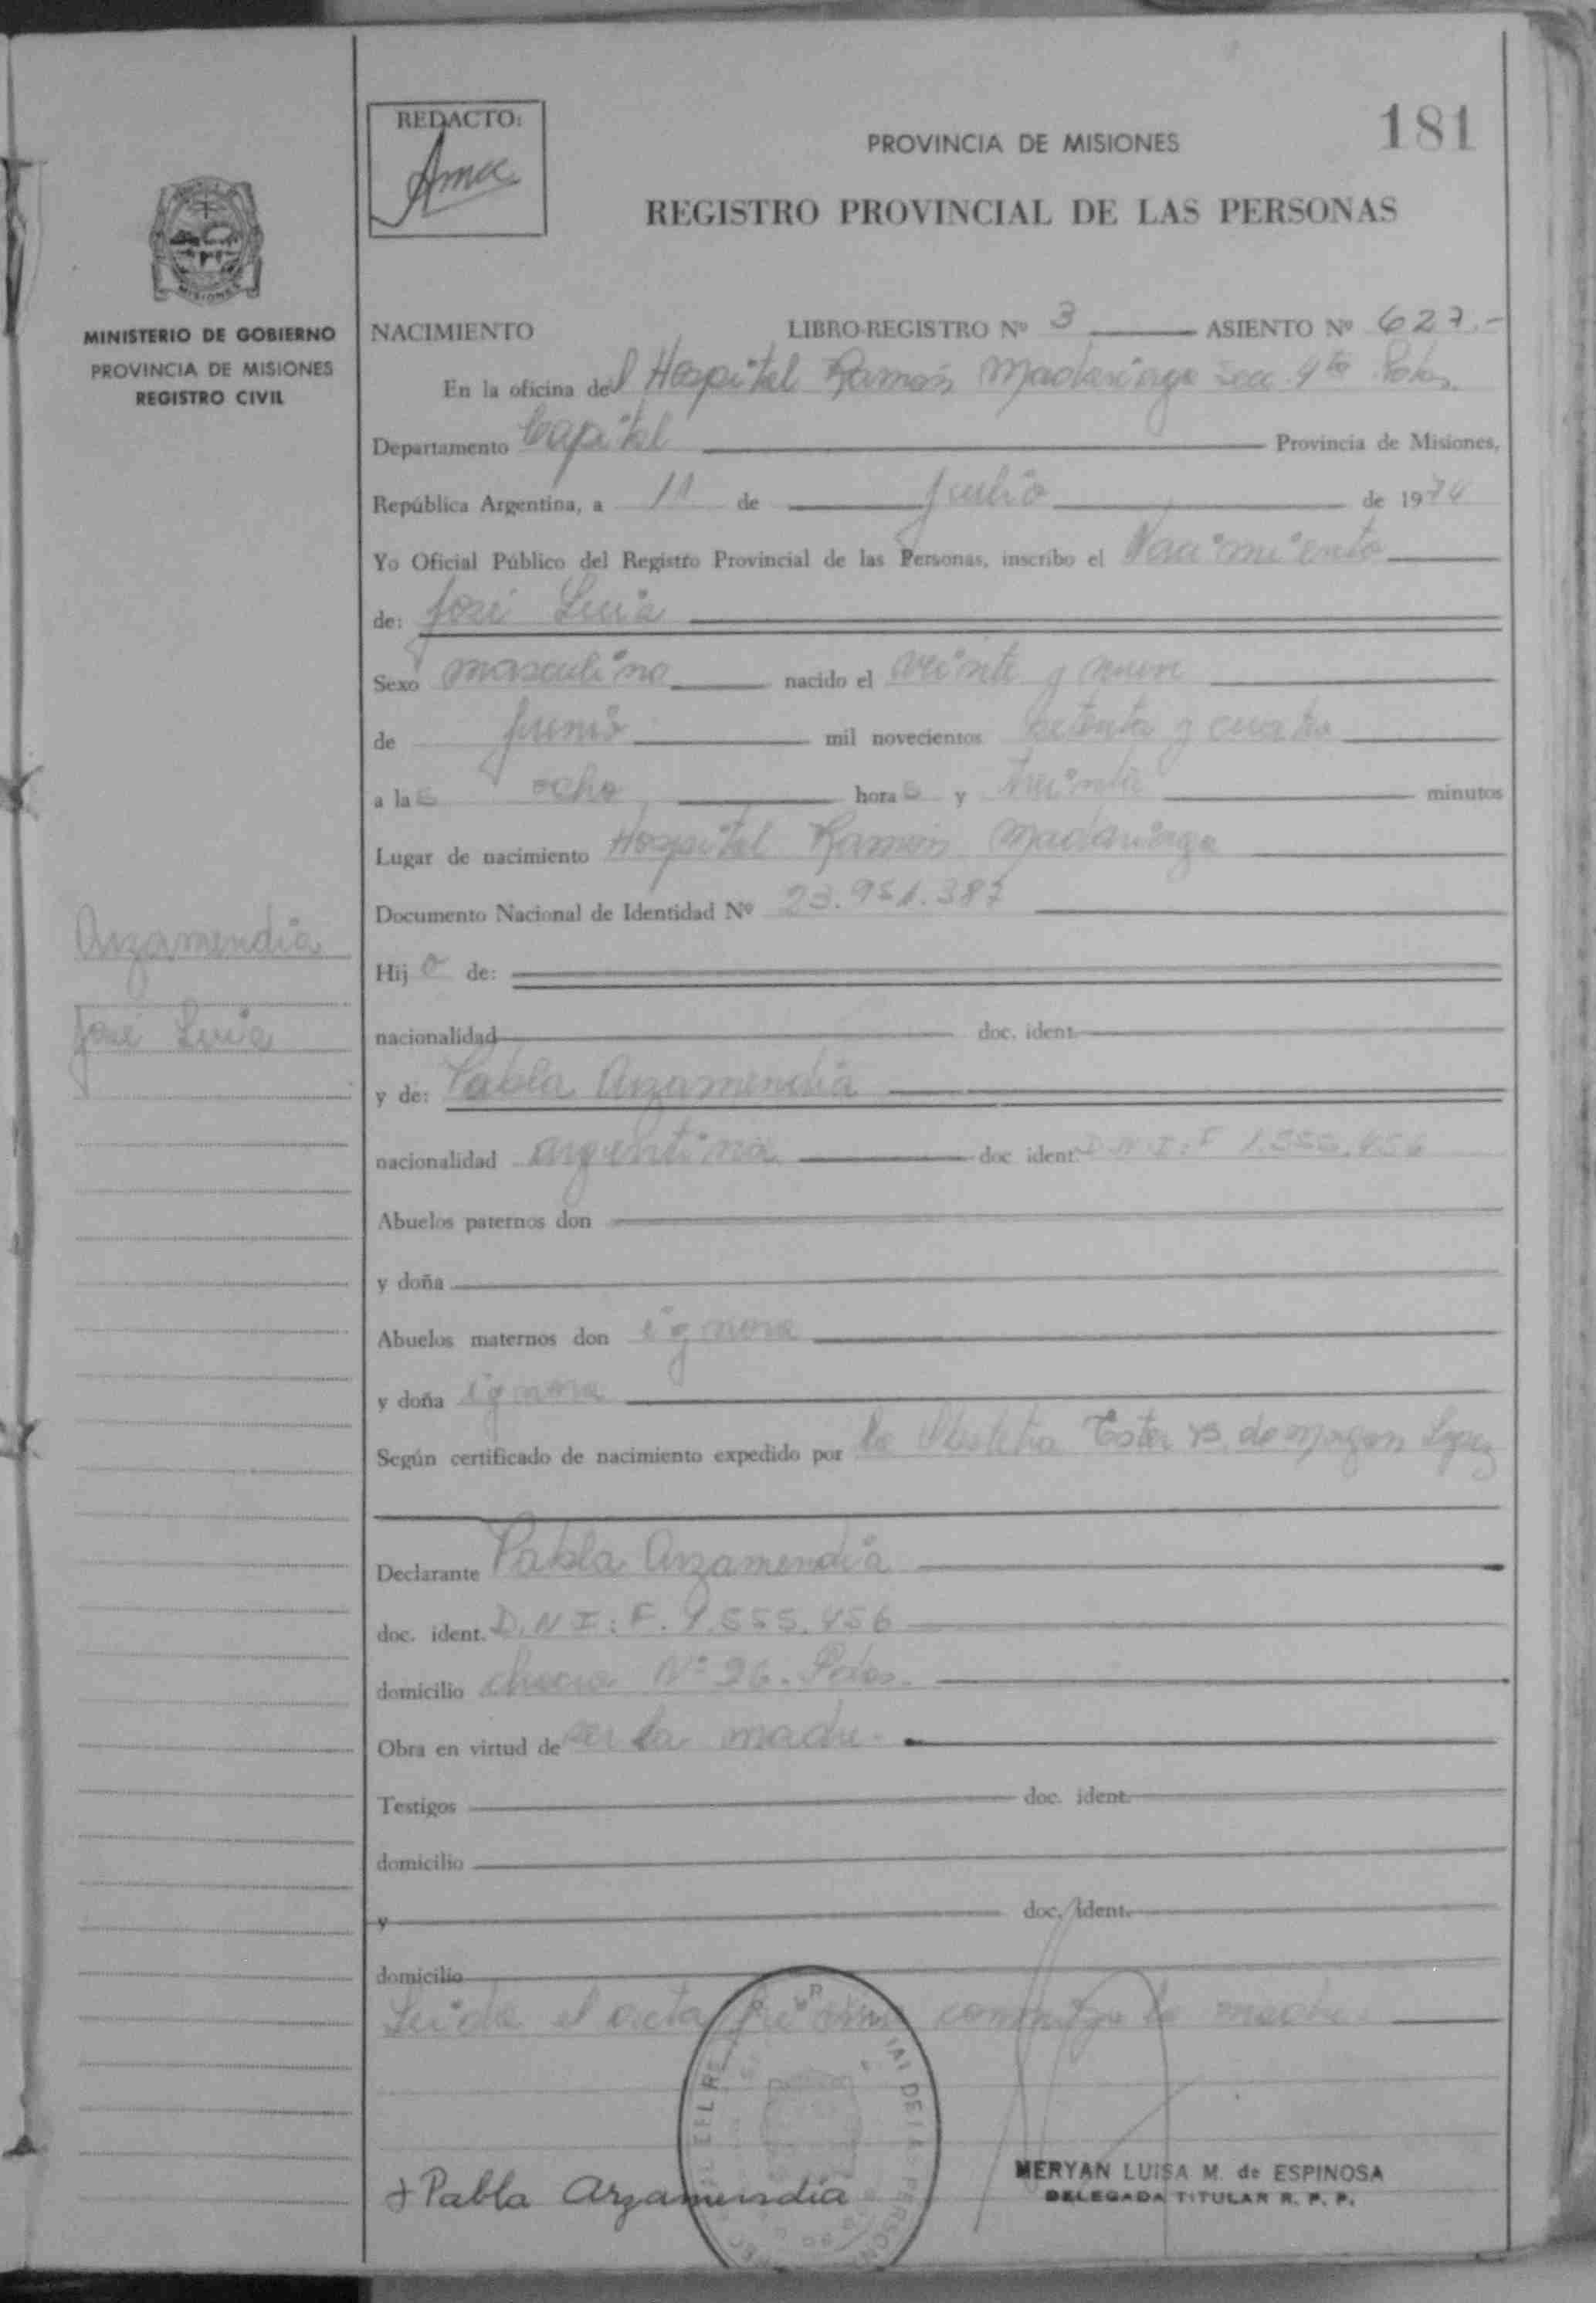 181
REDACTO:
PROVINCIA DE MISIONES
REGISTRO PROVINCIAL DE LAS PERSONAS
MISIONES
MINISTERIO DE GOBIERNO
PROVINCIA DE MISIONES
REGISTRO CIVIL
NACIMIENTO LIBRO-REGISTRO Nº 3 ASIENTO Nº 627.-
En la oficina del Hospital Ramón Madariaga Secc. 4ta Pdas.
Departamento Capital Provincia de Misiones,
República Argentina, a 11 de Julio de 1974
Yo Oficial Público del Registro Provincial de las Personas, inscribo el Nacimiento
de: José Luis
Sexo masculino nacido el veinte y nueve
de Junio mil novecientos setenta y cuatro
a las ocho horas y treinta minutos
Lugar de nacimiento Hospital Ramón Madariaga
Documento Nacional de Identidad Nº 23.951.387
Arzamendia
José Luis
Hijo de:
nacionalidad doc. ident.
y de: Pabla Arzamendia
nacionalidad argentina doc ident. D.N.I: F 1.555.456
Abuelos paternos don
y doña
Abuelos maternos don ignora
y doña ignora
Según certificado de nacimiento expedido por la Obstetra Ester B. de López
Declarante Pabla Arzamendia
doc. ident. D.N.I: F. 1.555.456
domicilio chacra Nº 26. Pdas.
Obra en virtud de ser la madre.
Testigos doc. ident.
domicilio
y doc. ident.
domicilio
Leida el acta firma conmigo la madre.
+ Pabla Arzamendia
MERYAN LUISA M. de ESPINOSA
DELEGADA TITULAR R. P. P.